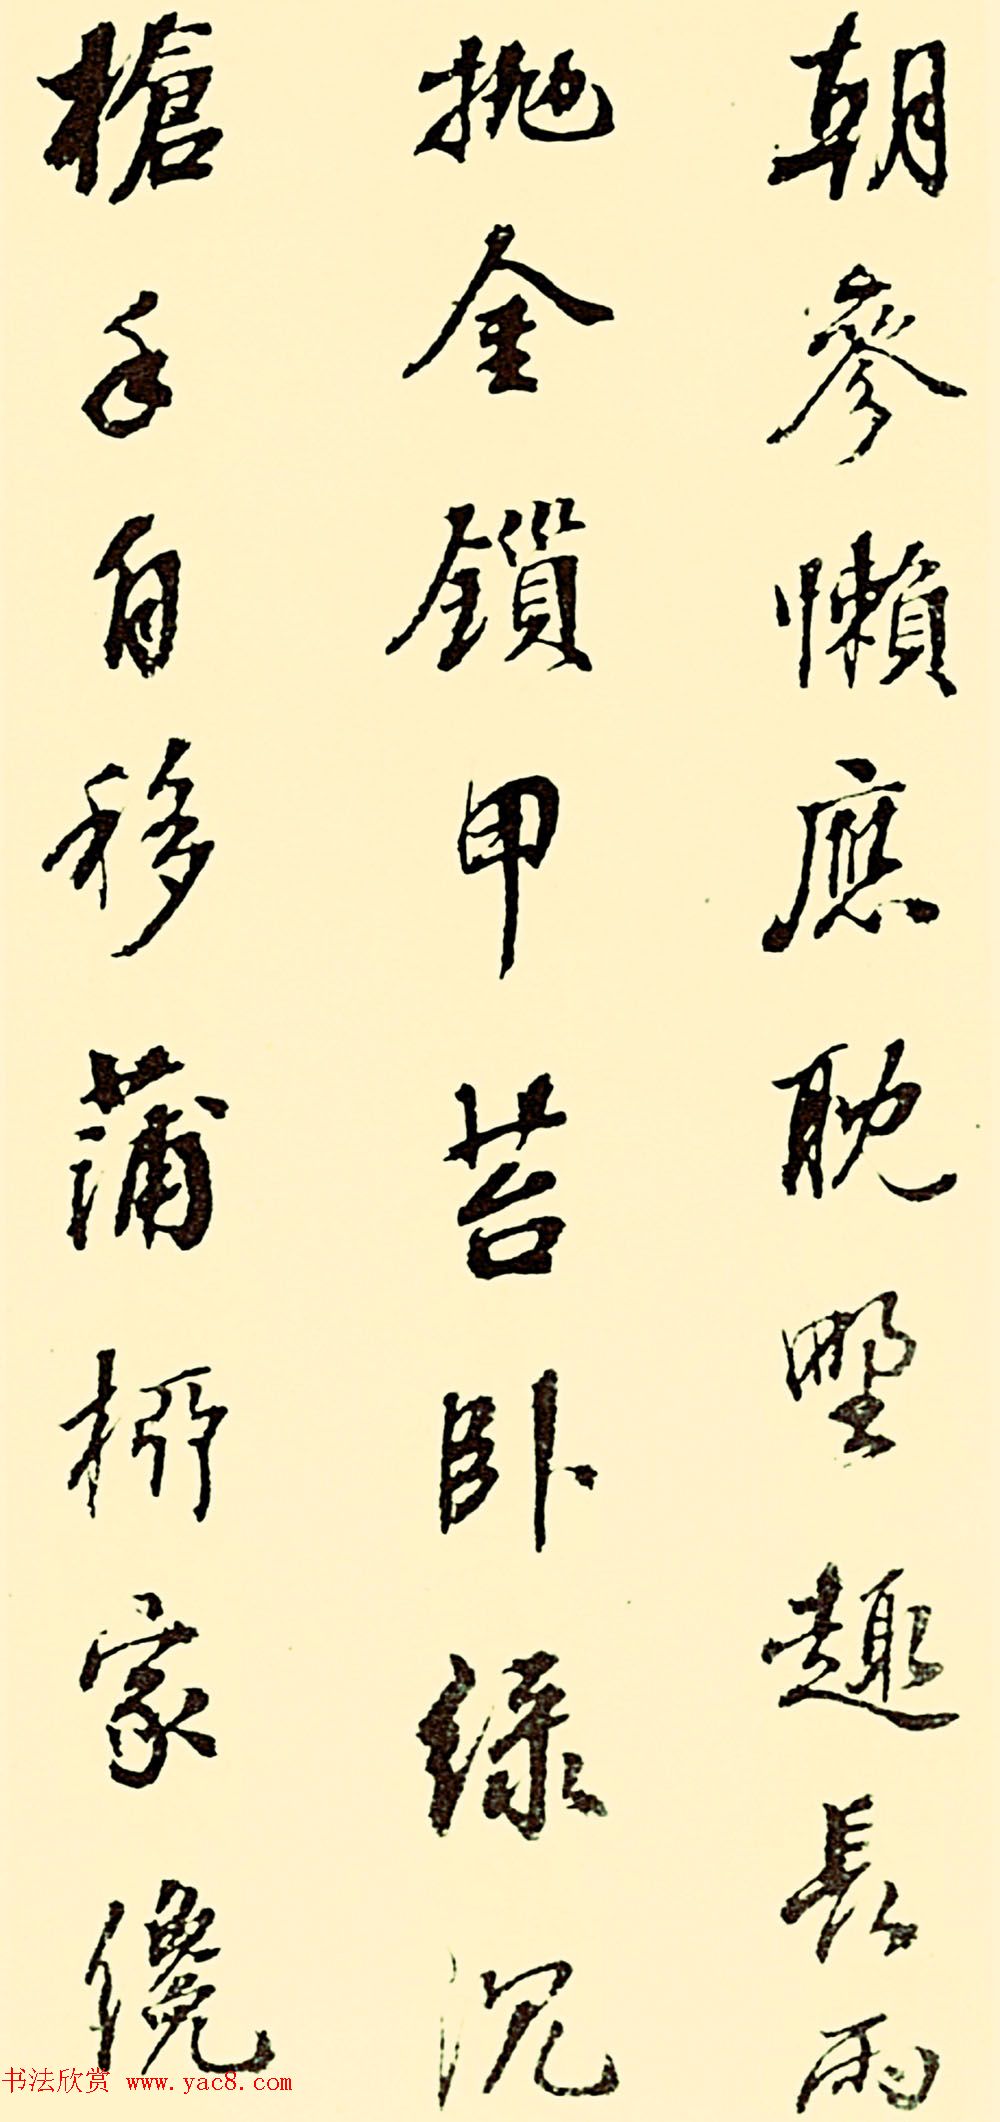 朝參懶應耽野趣長雨
拋金鎖甲苔臥綠沉
槍手自移蒲柳家纔
书法欣赏 www.yac8.com